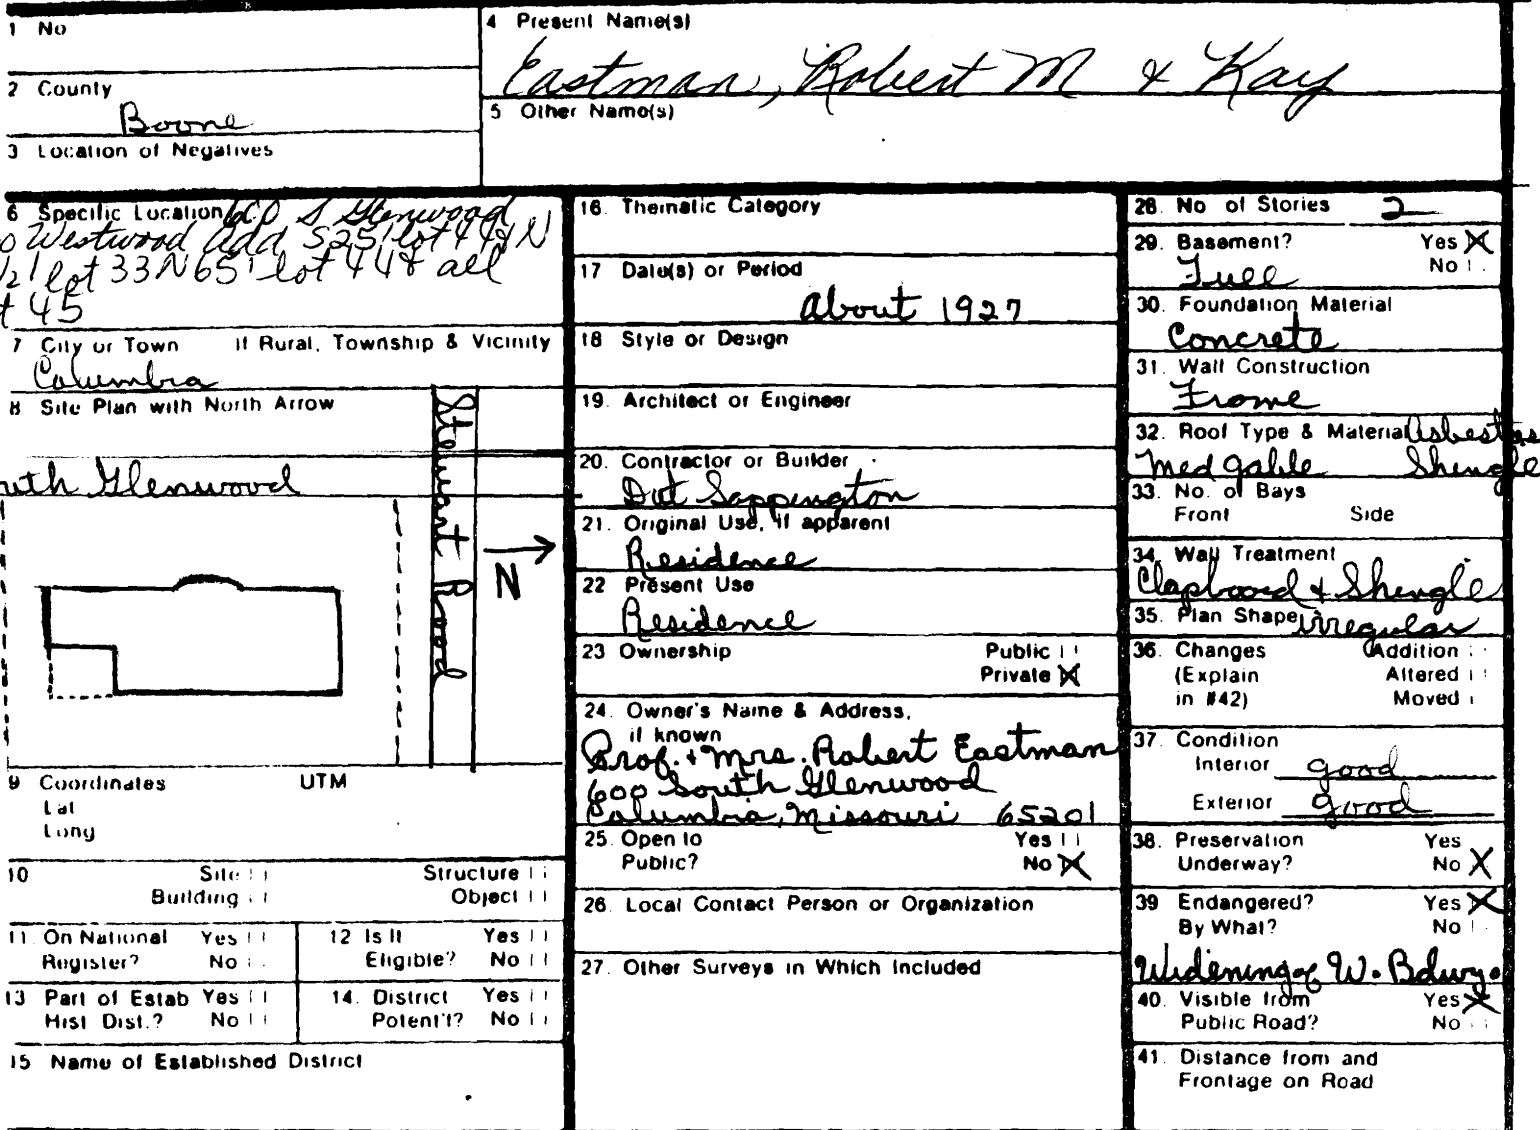 1 No
2 County
Boone
3 Location of Negatives
4 Present Name(s)
Eastman, Robert M & Kay
5 Other Name(s)
6 Specific Location 600 S Glenwood
Westwood Add S25' lot 44 & N
1/2' lot 33 N 65' lot 44 & all
45
7 City or Town If Rural, Township & Vicinity
Columbia
8 Site Plan with North Arrow
uth Glenwood
Stewart Road
N
9 Coordinates UTM
Lat
Long
10 Site Structure
Building Object
11. On National Register? Yes No
12 Is It Eligible? Yes No
13 Part of Estab Hist Dist.? Yes No
14. District Potent'l? Yes No
15 Name of Established District
16. Thematic Category
17 Date(s) or Period
About 1927
18 Style or Design
19. Architect or Engineer
20. Contractor or Builder
Dut Sappington
21. Original Use, if apparent
Residence
22 Present Use
Residence
23 Ownership Public
Private X
24. Owner's Name & Address,
if known
Prof. + Mrs. Robert Eastman
600 South Glenwood
Columbia, Missouri 65201
25. Open to Yes
Public? No X
26. Local Contact Person or Organization
27. Other Surveys in Which Included
28. No of Stories 2
29. Basement? Yes X
Full No
30. Foundation Material
Concrete
31. Wall Construction
Frame
32. Roof Type & Material Asbestos
Med gable Shingle
33. No. of Bays
Front Side
34. Wall Treatment
Clapboard + Shingle
35. Plan Shape irregular
36. Changes Addition
(Explain Altered
in #42) Moved
37. Condition
Interior good
Exterior good
38. Preservation Yes
Underway? No X
39 Endangered? Yes X
By What? No
Widening of W. Bdwy.
40. Visible from Yes X
Public Road? No
41. Distance from and
Frontage on Road